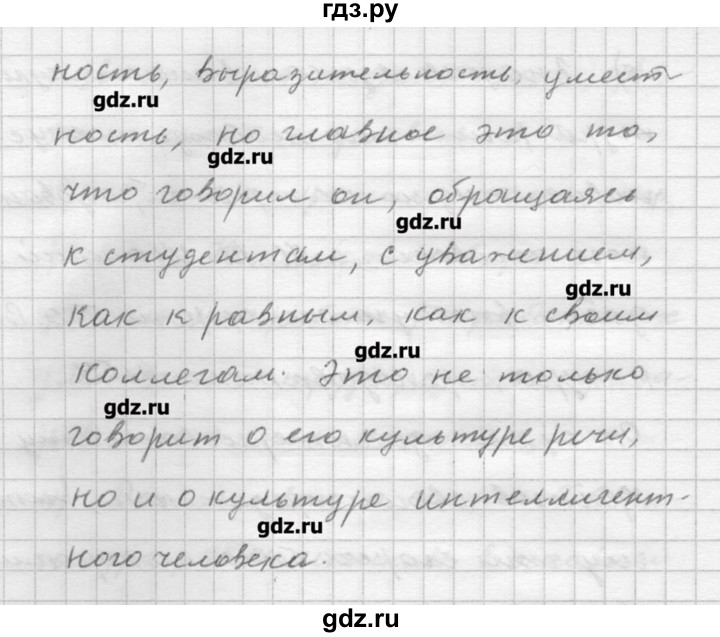 гдз.ру
ность, выразительность, умест-
gdz.ru
ность, но главное это то,
gdz.ru
что говорил он, обращаясь
gdz.ru
к студентам, с уважением,
gdz.ru
как к равным, как к своим
gdz.ru
коллегам. Это не только
gdz.ru
говорит о его культуре речи,
но и о культуре интеллигент-
gdz.ru
ного человека.
gdz.ru